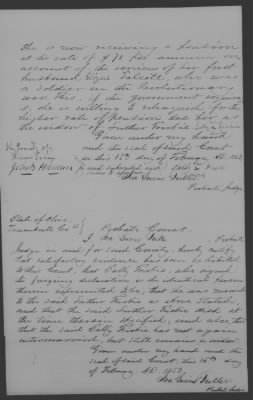 she is now receiving a pension
at the rate of $70 per annum, on
account of the services of her first
husband, who was
a Soldier in the Revolutionary
war this, if the government desires
it, she is willing to relinquish for the
higher rate of pension due her as
the widow of Luther Frisbie
Given under my hand
and the seal of said Court
on this 16th day of February AD. 1853
Ira Lucius Fuller
Probate Judge
State of Ohio
Trumbull Co. ss
Probate Court.
I, Ira Lucius Fuller, Probate
Judge in and for said County, hereby certify
that satisfactory evidence has been exhibited
to this Court, that Sally Frisbie, who signed
the foregoing declaration is the identical person
therein represented to be, that she was married
to the said Luther Frisbie as above stated,
and that the said Luther Frisbie died at
the time therein specified, and also that
that the said Sally Frisbie has not again
intermarried, but still remains a widow.
Given under my hand and the
seal of said Court, this 16th day
of February, AD. 1853.
Ira Lucius Fuller
Probate Judge